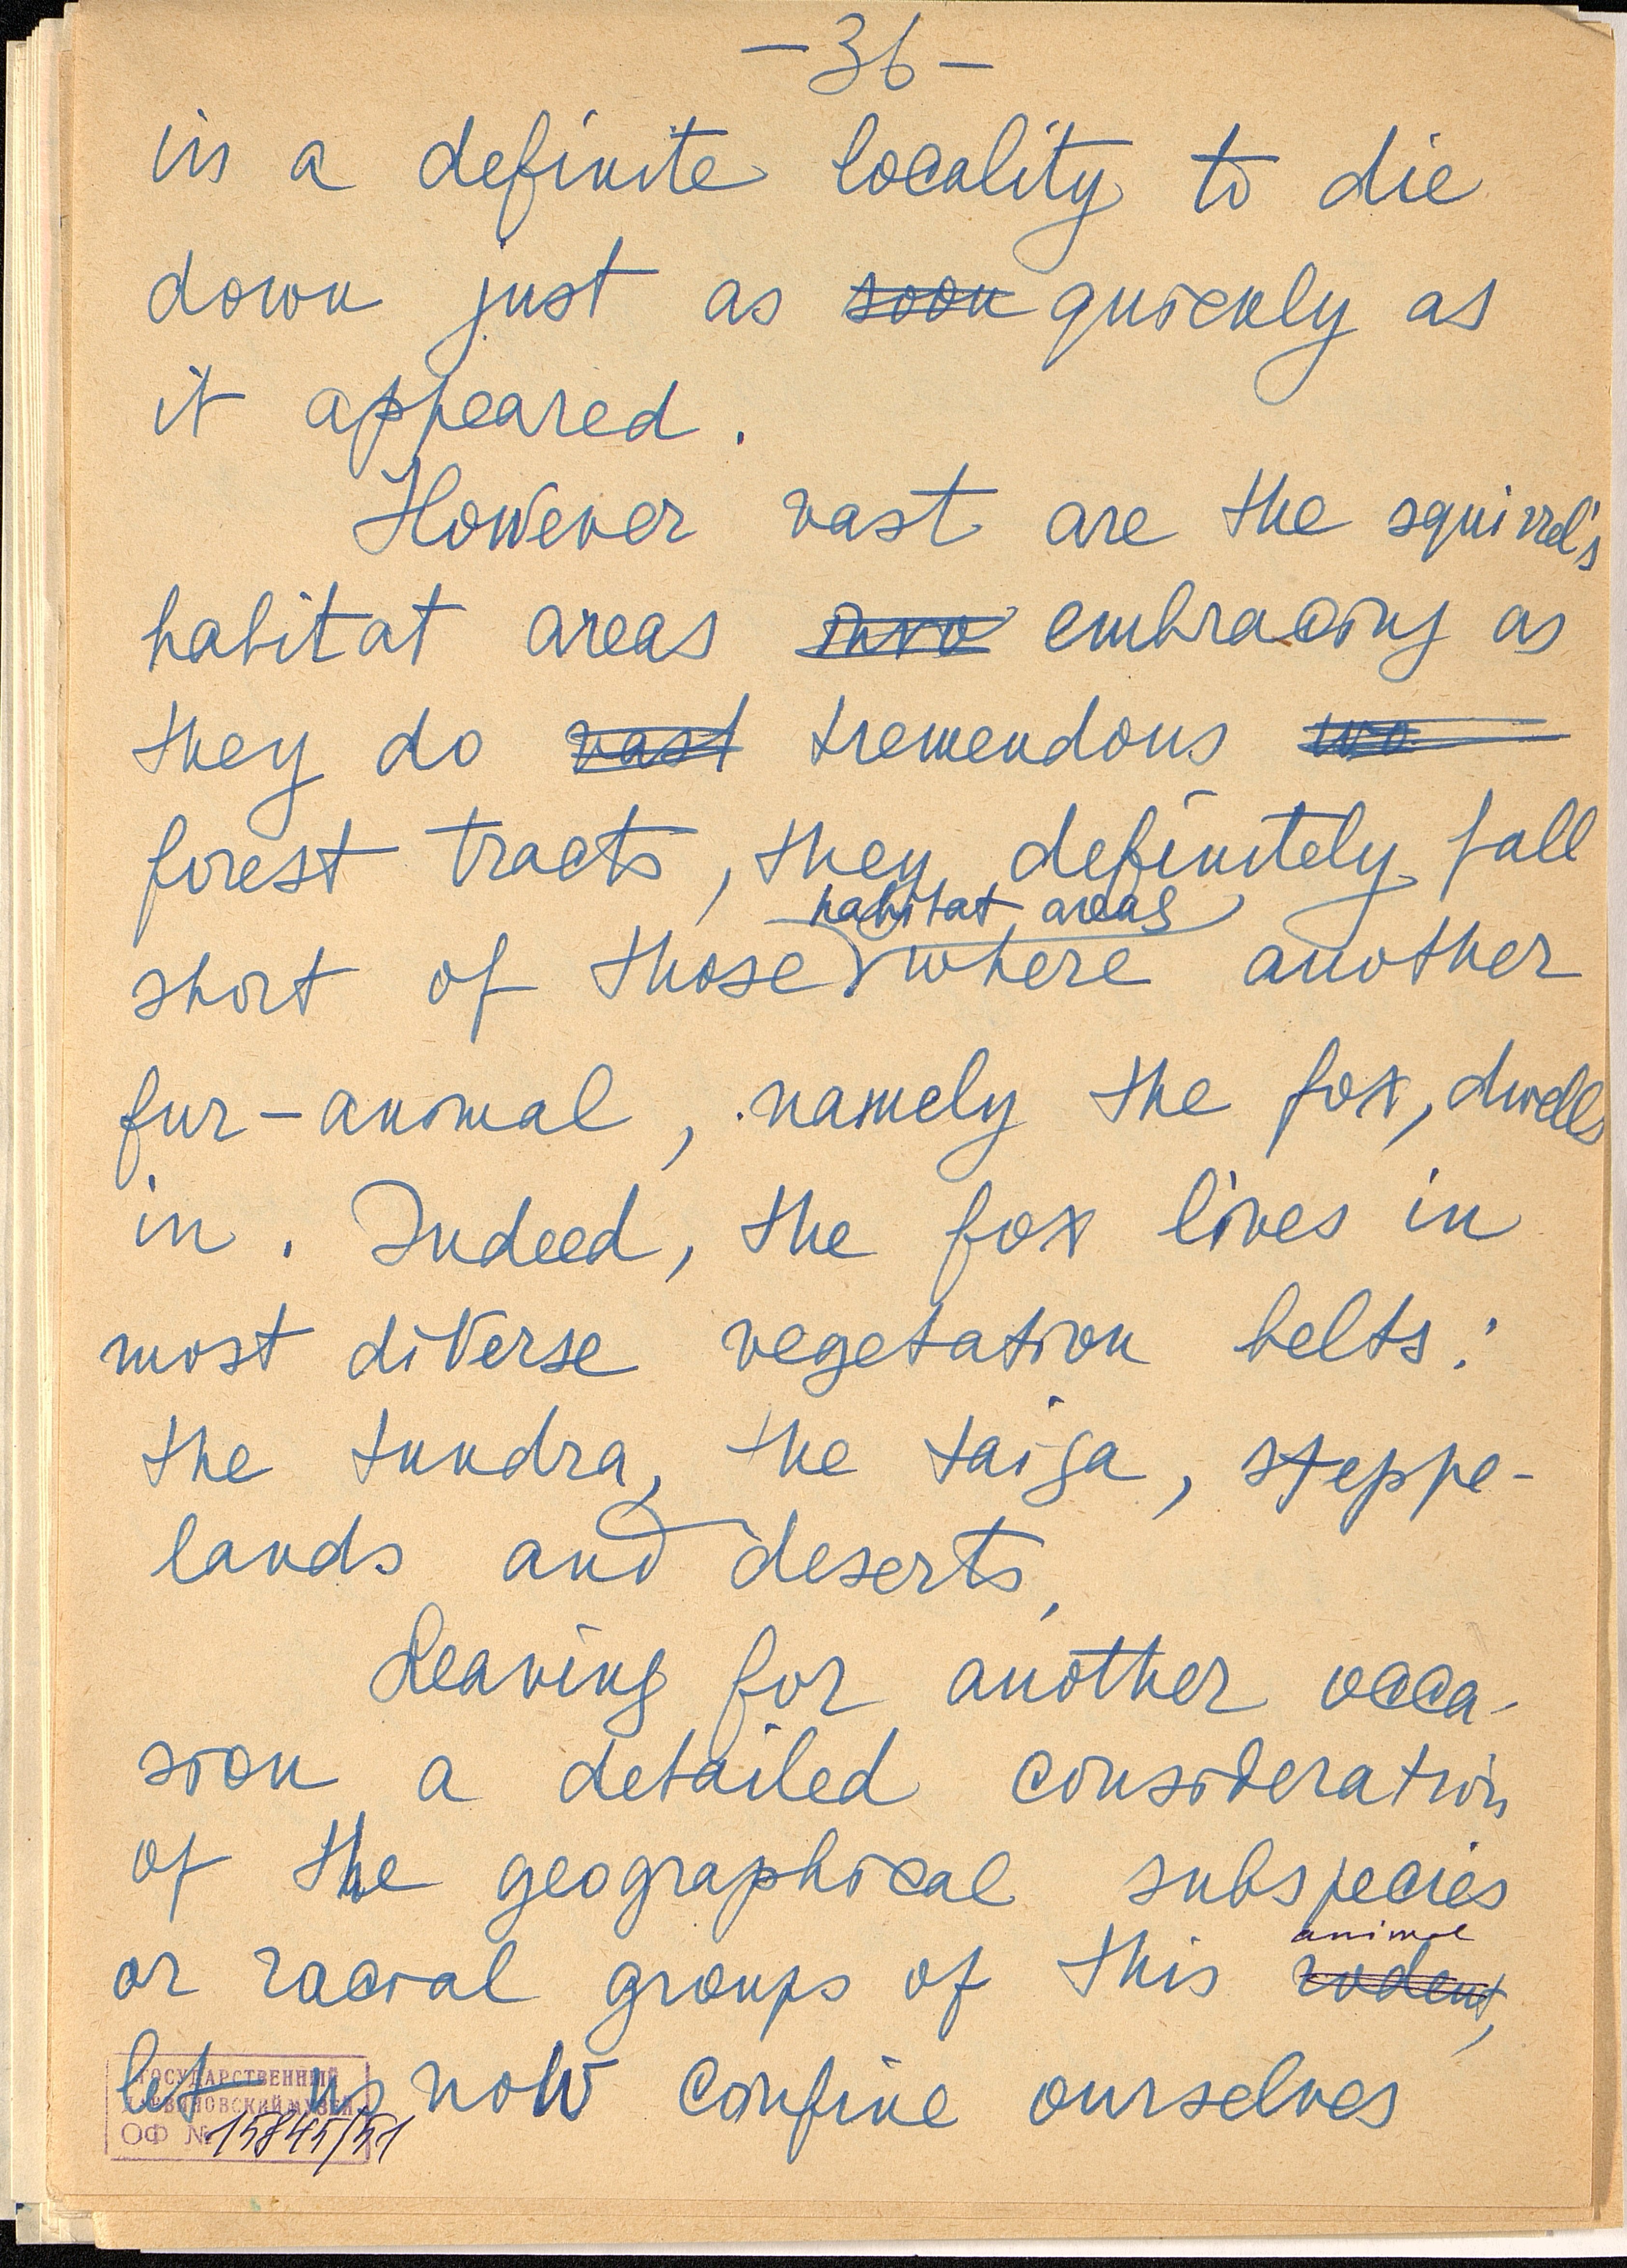 -36-
in a definite locality to die
down just as soon quickly as
it appeared.
However vast are the squirrel's
habitat areas embracing as
they do vast tremendous
forest tracts, they definitely fall
habitat areas
short of those where another
fur-animal, namely the fox, dwells
in. Indeed, the fox lives in
most diverse vegetation belts:
the tundra, the taiga, steppe-
lands and deserts,
Leaving for another occa-
sion a detailed consideration
of the geographical subspecies
animal
or racial groups of this rodent,
let us now confine ourselves
ГОСУДАРСТВЕННЫЙ
ДАРВИНОВСКИЙ МУЗЕЙ
ОФ № 15845/51